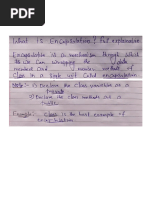 What is Encapsulation? full explanation
Encapsulation is a mechanism through which
we can wrapping the data
member and member methods of
class in a single unit called encapsulation
Note: i) Declare the class variables as a
private
ii) Declare the class methods as a
public
Example: class is the best example of
encapsulation